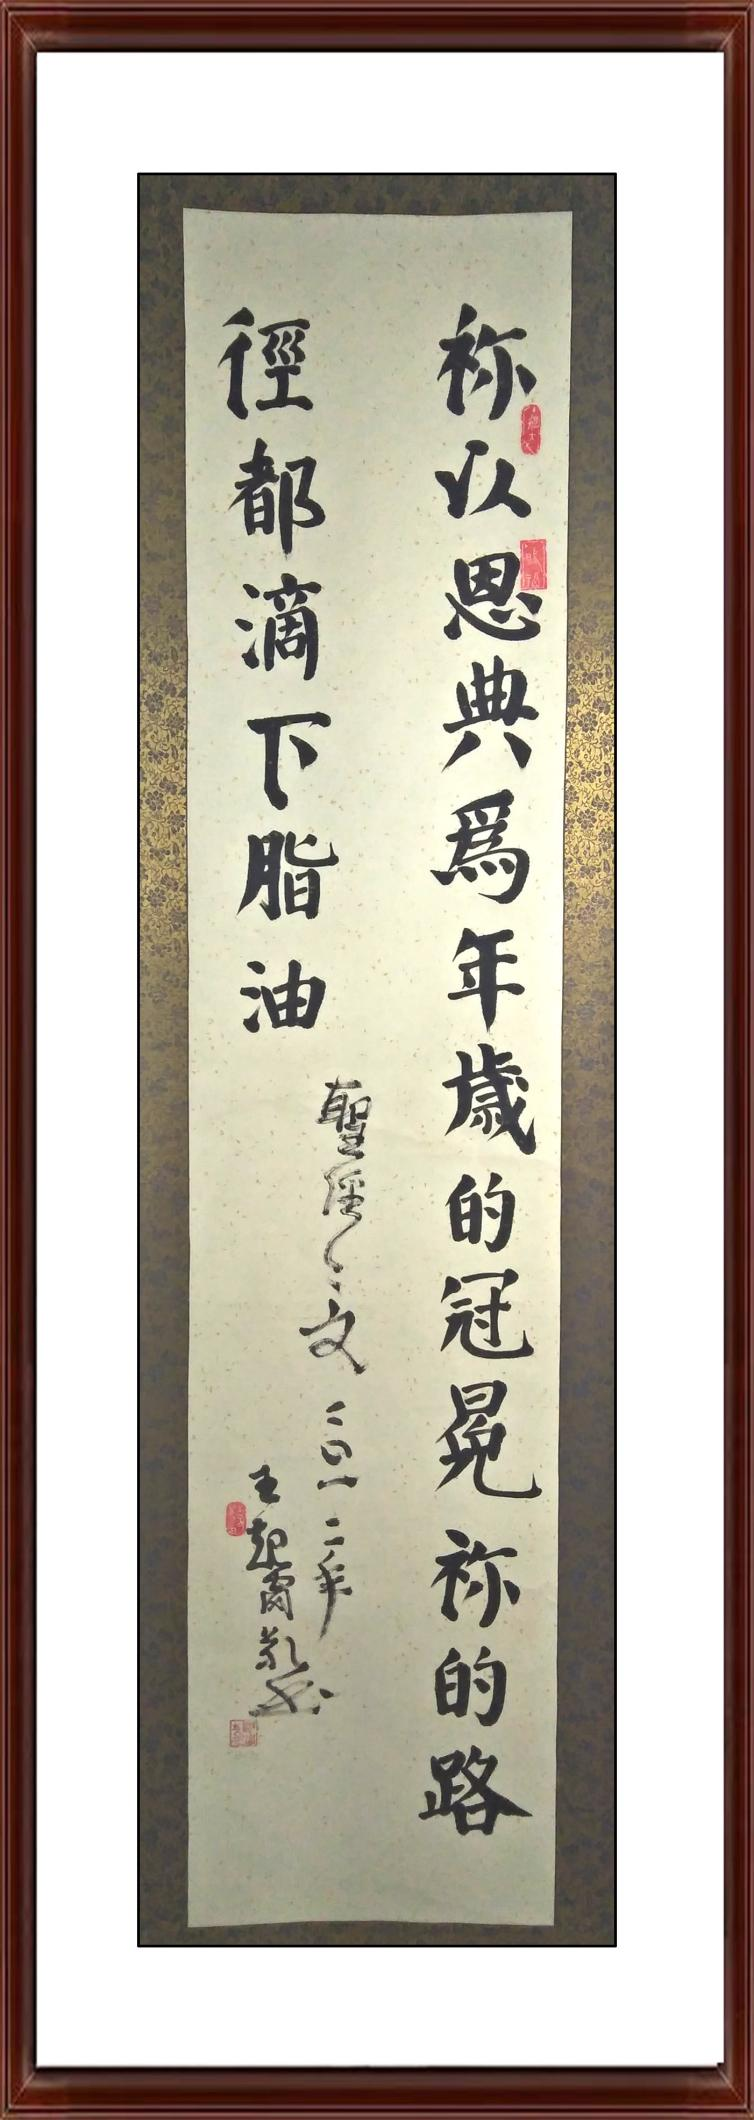 祢以恩典爲年歲的冠冕祢的路
徑都滴下脂油
聖經之文 二〇一二年
王起